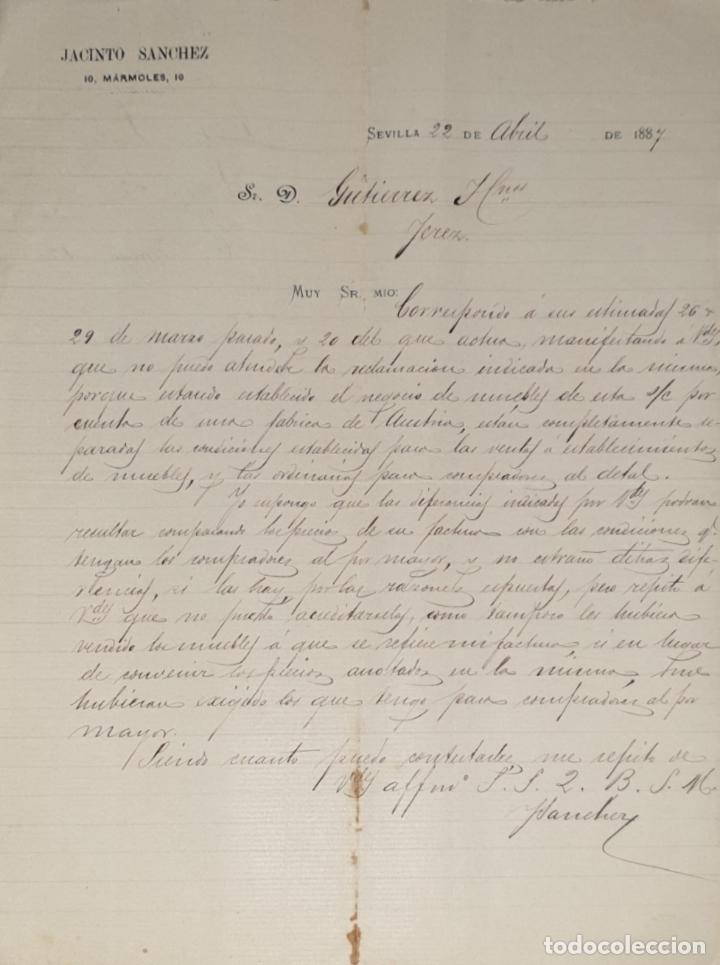 JACINTO SANCHEZ
10, MÁRMOLES, 10
SEVILLA 22 DE Abril DE 1887
Sr. D. Gutierrez Hnos
Jerez.
MUY SR. MIO: Correspondo á sus estimadas 26 y
29 de marzo pasado, y 20 del que actua, manifestando á Vdes,
que no puedo atender la reclamacion indicada en la misma,
porque estando establecido el negocio de muebles de esta s/c por
cuenta de una fabrica de Austria, estan completamente se-
paradas las condiciones establecidas para las ventas á establecimientos
de muebles, y las ordinarias para compradores al detal.
Yo supongo que las diferencias indicadas por Vdes podran
resultar comparando los precios de su factura con las condiciones q.
tengan los compradores al por mayor, y no estraño dichas dife-
rencias, si las hay, por las razones espuestas, pero repito á
Vdes que no puedo acreditarselas, como tampoco les hubiera
vendido los muebles á que se refiere mi factura, si en lugar
de convenir los precios anotados en la misma, me
hubieran exigido los que tengo para compradores al por
mayor.
Siendo cuanto puedo contestarles, me repito de
Vdes affmo S. S. Q. B. S. M.
JSanchez
todocoleccion